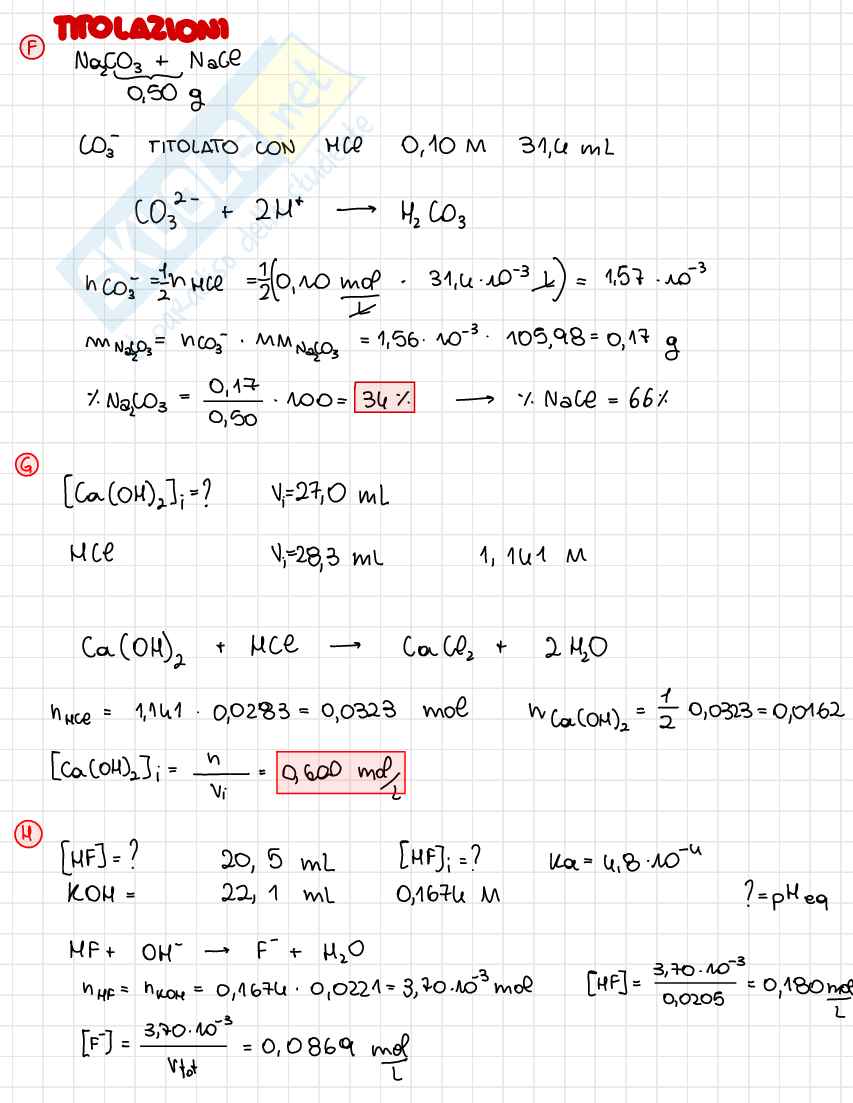 TITOLAZIONI
F Na₂CO₃ + NaCl
0,50 g
CO₃⁻ TITOLATO CON HCl 0,10 M 31,4 mL
CO₃²⁻ + 2H⁺ → H₂CO₃
n CO₃⁻ = 1/2 n HCl = 1/2 (0,10 mol/L · 31,4·10⁻³ L) = 1,57 · 10⁻³
m Na₂CO₃ = n CO₃⁻ · MM Na₂CO₃ = 1,56 · 10⁻³ · 105,98 = 0,17 g
% Na₂CO₃ = 0,17/0,50 · 100 = 34 % → % NaCl = 66%
G
[Ca(OH)₂]i = ? Vi = 27,0 mL
HCl Vi = 28,3 mL 1,141 M
Ca(OH)₂ + HCl → CaCl₂ + 2 H₂O
n HCl = 1,141 · 0,0283 = 0,0323 mol n Ca(OH)₂ = 1/2 0,0323 = 0,0162
[Ca(OH)₂]i = n/Vi = 0,600 mol/L
H
[HF] = ? 20,5 mL [HF]i = ? Ka = 4,8·10⁻⁴
KOH = 22,1 mL 0,1674 M ? = pH eq
HF + OH⁻ → F⁻ + H₂O
n HF = n KOH = 0,1674 · 0,0221 = 3,70·10⁻³ mol [HF] = 3,70·10⁻³/0,0205 = 0,180 mol/L
[F⁻] = 3,70·10⁻³/Vtot = 0,0869 mol/L
SKUOLA.net
il paradiso dello studente